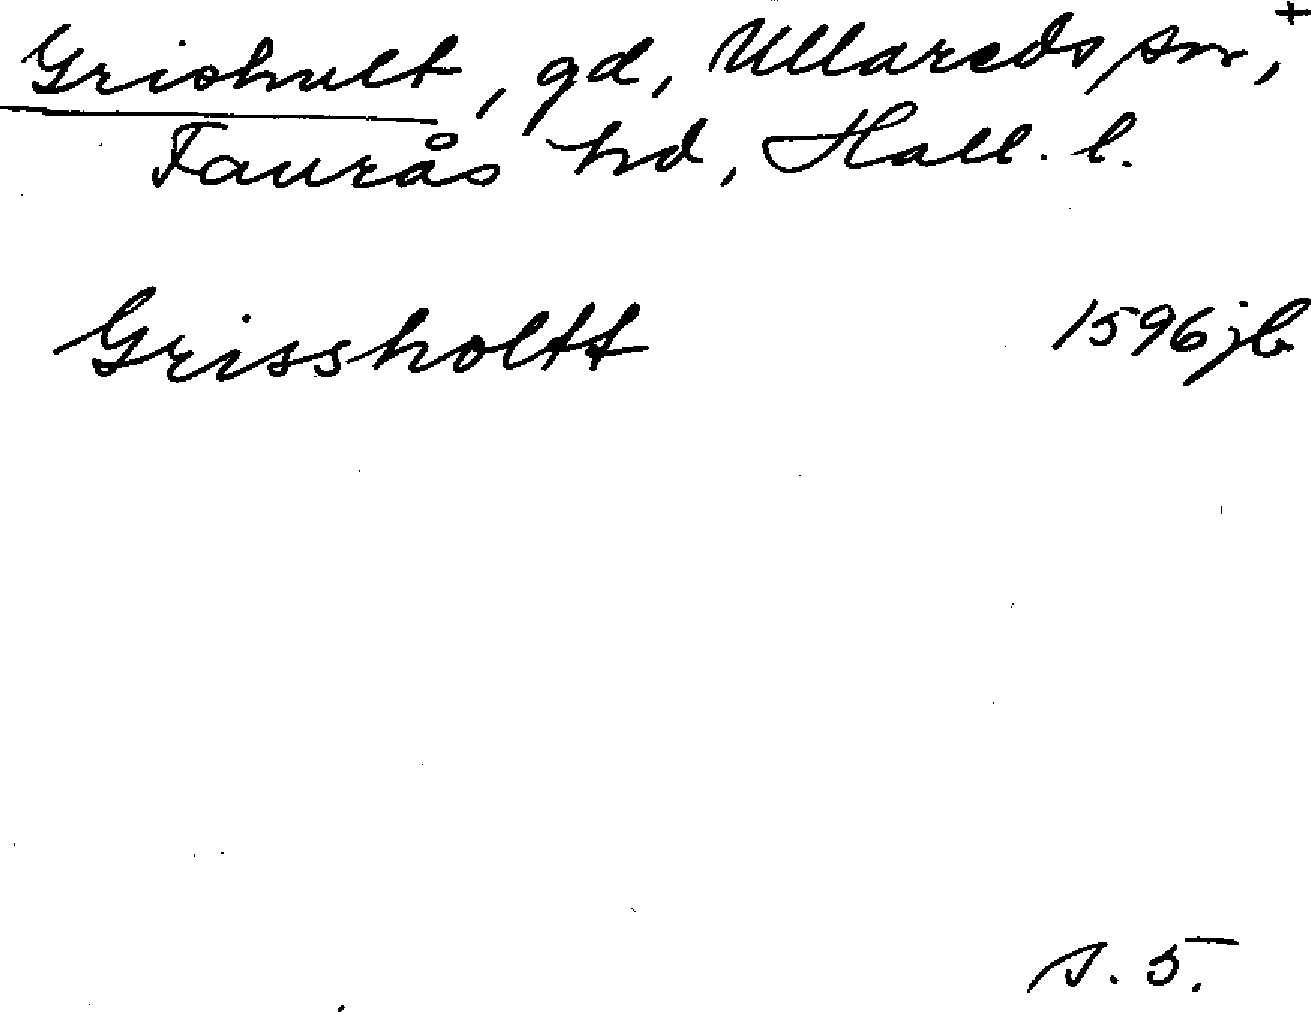 Grishult, gd, Ullareds sn, +
Faurås hd, Hall. l.
Grissholtt 1596 jb
s. 5.